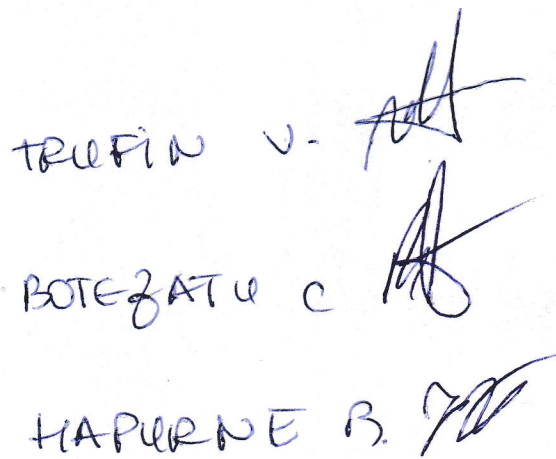 TRUFIN V.
BOTEZATU C
HAPURNE B.